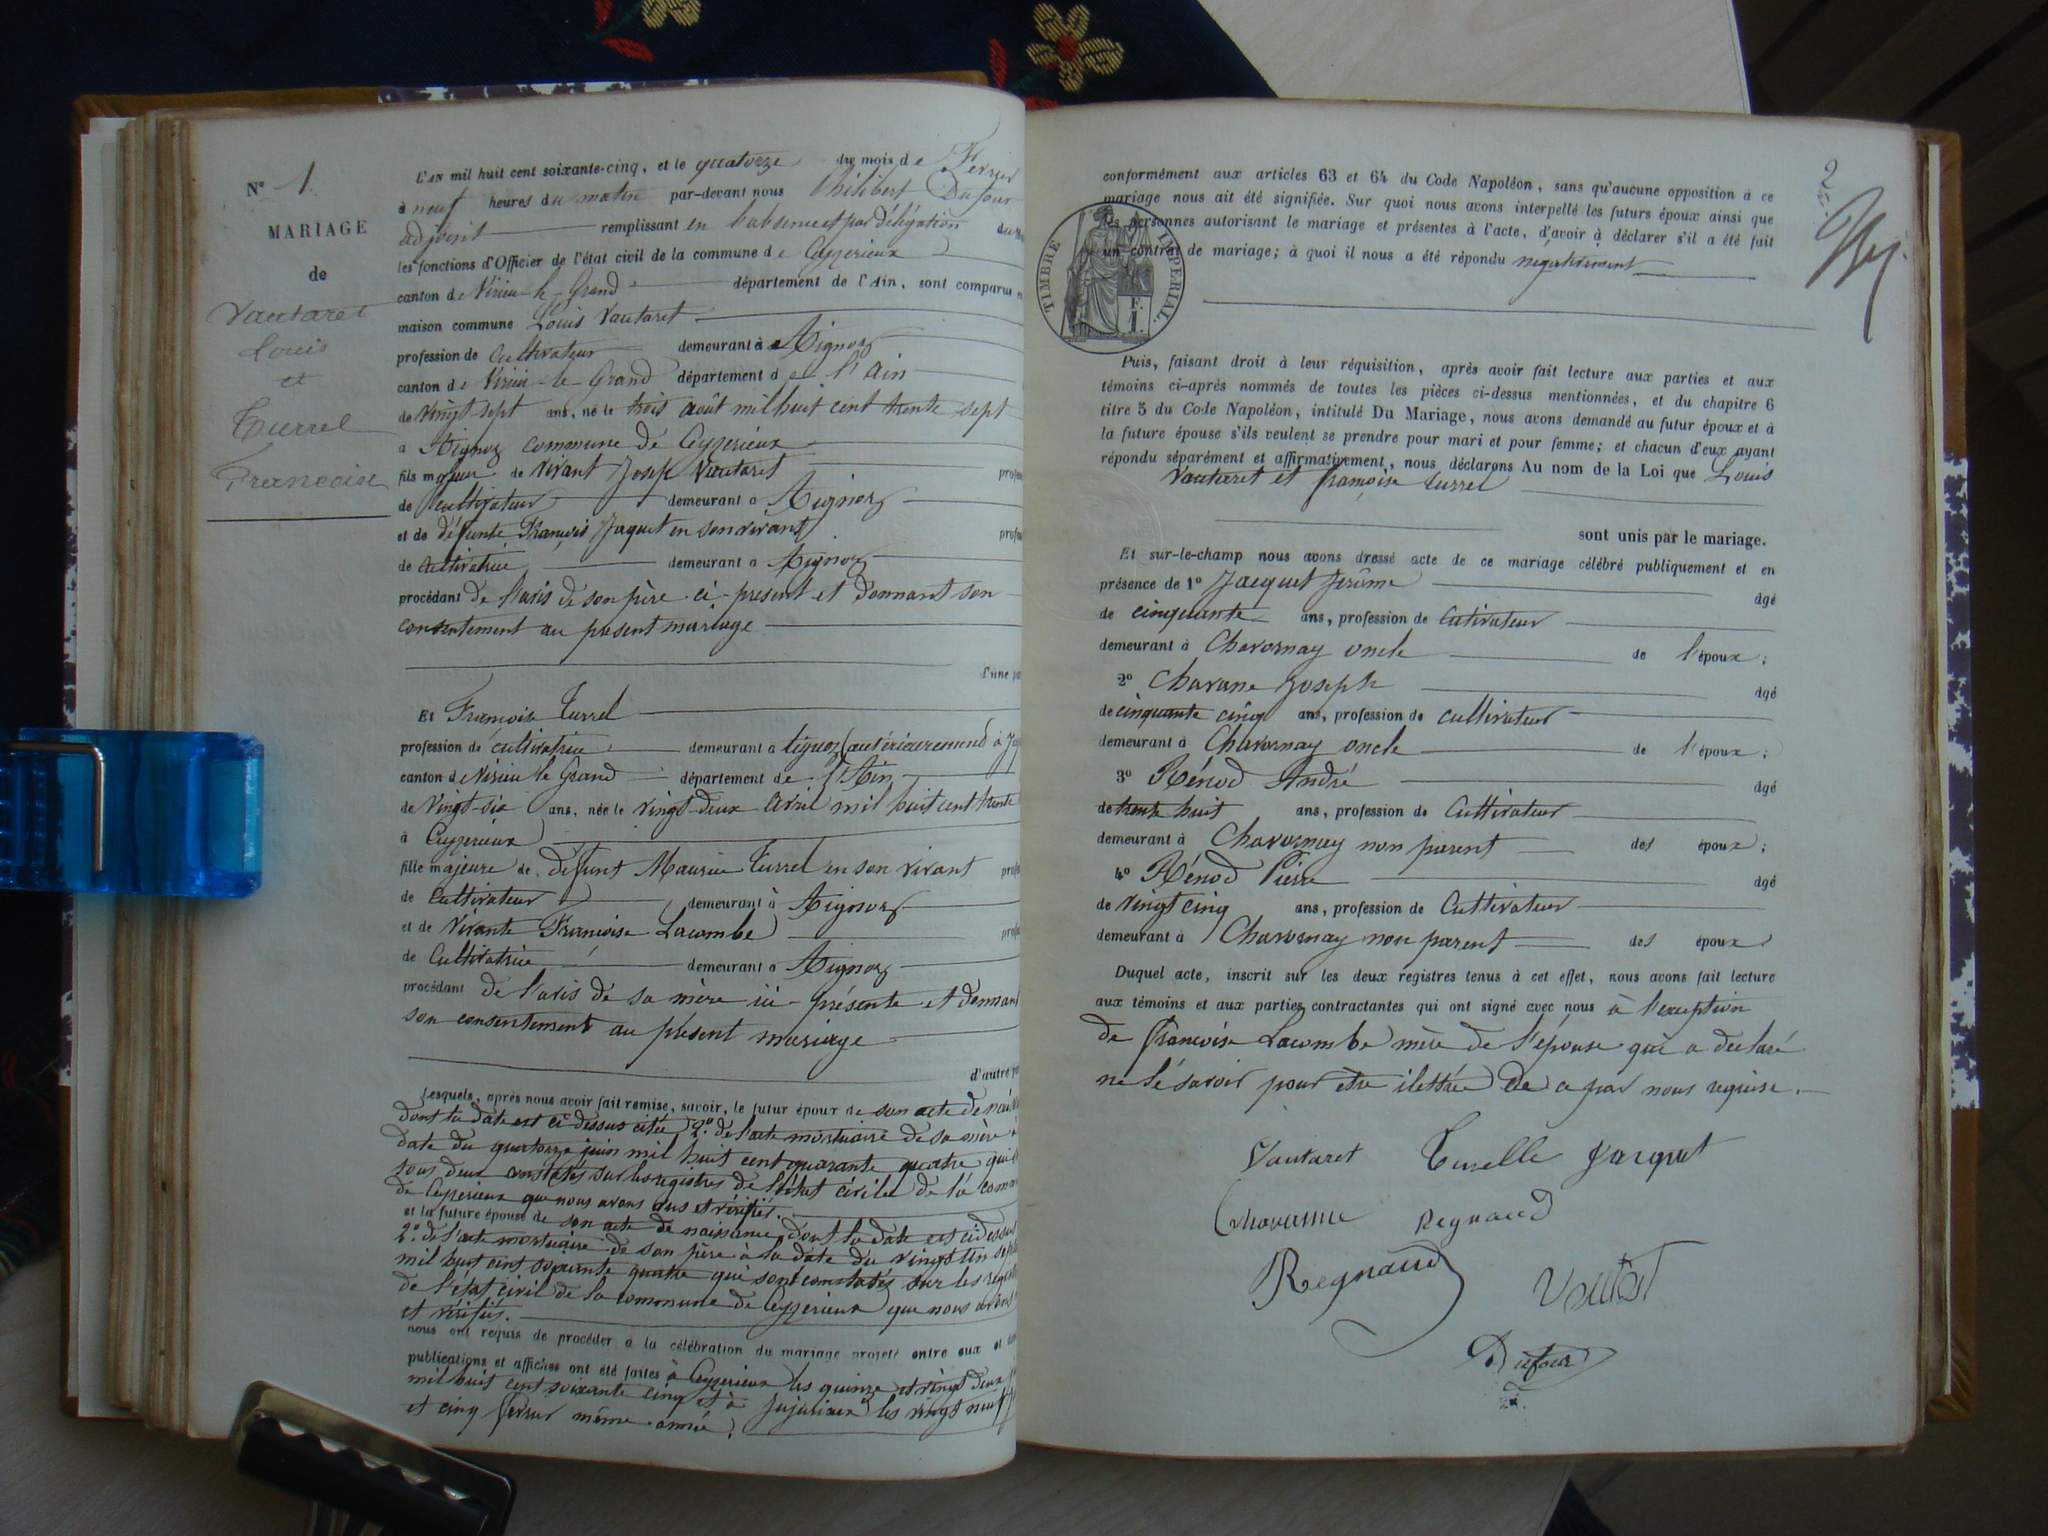 N° 1.
MARIAGE
de
Vautaret
Louis
et
Turrel
Francoise
L'AN mil huit cent soixante-cinq, et le quatorze du mois de Fevrier
à neuf heures du matin par-devant nous Philibert Dufour
adjoint remplissant en l'absence et par délégation du
les fonctions d'Officier de l'état civil de la commune de Ceyzerieux
canton de Virieu-le-Grand département de l'Ain, sont comparus en
maison commune Louis Vautaret
profession de cultivateur demeurant à Aignoz
canton de Virieu-le-Grand département de l'Ain
de vingt sept ans, né le trois août mil huit cent trente sept
à Aignoz commune de Ceyzerieux
fils majeur de vivant Joseph Vautaret
de cultivateur demeurant à Aignoz
et de défunte Françoise Jaquet en son vivant
de cultivatrice demeurant à Aignoz
procédant de l'avis de son père ci-présent et donnant son
consentement au présent mariage
d'une
Et Françoise Turrel
profession de cultivatrice demeurant à Aignoz (antérieurement à
canton de Virieu le Grand département de l'Ain
de vingt-six ans, née le vingt-deux avril mil huit cent trente
à Ceyzerieux
fille majeure de défunt Maurice Turrel en son vivant
de cultivateur demeurant à Aignoz
et de vivante Françoise Lacombe
de cultivatrice demeurant à Aignoz
procédant de l'avis de sa mère ici-présente et donnant
son consentement au présent mariage
d'autre
Lesquels, après nous avoir fait remise, savoir, le futur époux de son acte de
dont la date est ci dessus citée 2° de l'acte mortuaire de sa mère à
date du quatorze juin mil huit cent quarante quatre qui
tous deux constatés sur les registres de l'état civile de la
de Ceyzerieux que nous avons vus et vérifiés.
et la future épouse de son acte de naissance dont la date est ci dessus
2° de l'acte mortuaire de son père à la date du vingt un
mil huit cent soixante quatre qui sont constatés sur les
de l'état civil de la commune de Ceyzerieux que nous avons
et vérifiés.
nous ont requis de procéder à la célébration du mariage projeté entre eux et
publications et affiches ont été faites à Ceyzerieux les quinze et vingt deux
mil huit cent soixante cinq et à Jujurieux les vingt neuf
et cinq fevrier même année.
2
conformément aux articles 63 et 64 du Code Napoléon, sans qu'aucune opposition à ce
mariage nous ait été signifiée. Sur quoi nous avons interpellé les futurs époux ainsi que
les personnes autorisant le mariage et présentes à l'acte, d'avoir à déclarer s'il a été fait
un contrat de mariage; à quoi il nous a été répondu négativement
TIMBRE IMPERIAL.
F.
1.
Puis, faisant droit à leur réquisition, après avoir fait lecture aux parties et aux
témoins ci-après nommés de toutes les pièces ci-dessus mentionnées, et du chapitre 6
titre 5 du Code Napoléon, intitulé Du Mariage, nous avons demandé au futur époux et à
la future épouse s'ils veulent se prendre pour mari et pour femme; et chacun d'eux ayant
répondu séparément et affirmativement, nous déclarons Au nom de la Loi que Louis
Vautaret et Françoise Turrel
sont unis par le mariage.
Et sur-le-champ nous avons dressé acte de ce mariage célébré publiquement et en
présence de 1° Jacquet Jerôme âgé
de cinquante ans, profession de cutivateur
demeurant à Chavornay oncle de l'époux;
2° Chavane Joseph âgé
de cinquante cinq ans, profession de cultivateur
demeurant à Chavornay oncle de l'époux;
3° Rénod André âgé
de trente huit ans, profession de cultivateur
demeurant à Chavornay non parent des époux;
4° Rénod Pierre âgé
de vingt cinq ans, profession de cultivateur
demeurant à Chavornay non parent des époux
Duquel acte, inscrit sur les deux registres tenus à cet effet, nous avons fait lecture
aux témoins et aux parties contractantes qui ont signé avec nous à l'exception
de Françoise Lacombe mère de l'épouse qui a déclaré
ne le savoir pour etre ilettrée de ce par nous requise.
Vautaret Turelle Jacquet
Chavanne Regnaud
Regnaud
Dufour